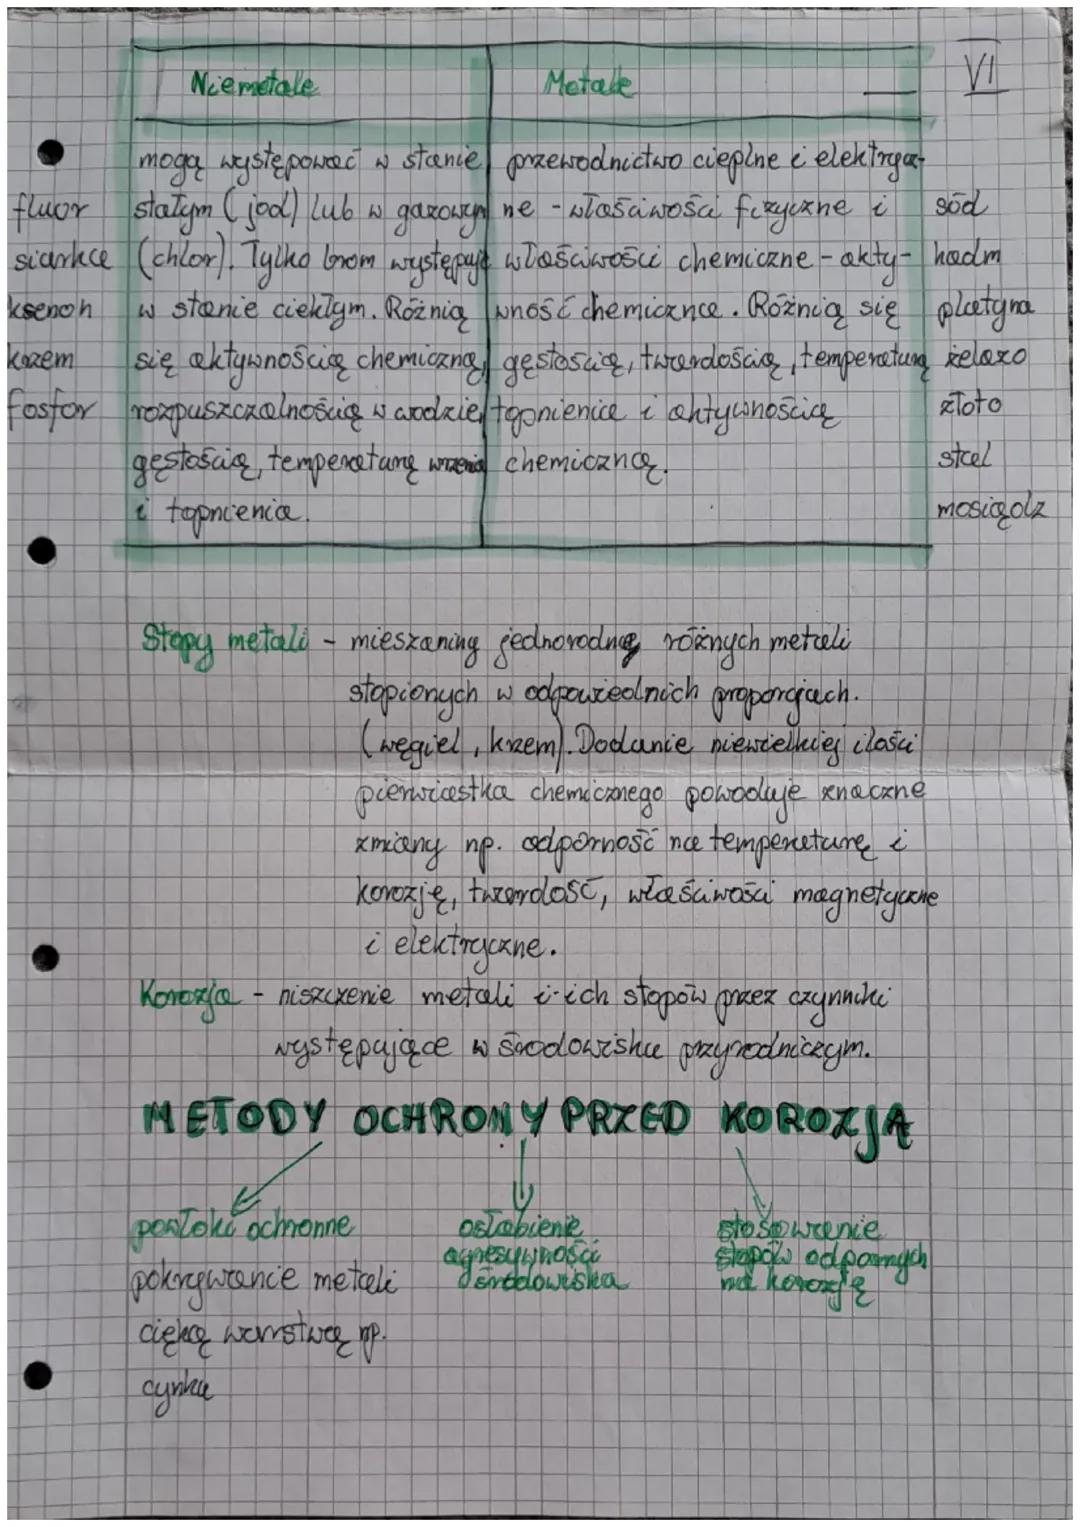 VI
Niemetale
mogą występować w stanie
stałym (jod) lub w gazowym
(chlor). Tylko brom występuje
w stanie ciekłym. Różnią
się aktywnością chemiczną,
rozpuszczalnością w wodzie,
gęstością, temperaturą wrzenia
i topnienia.
Metale
przewodnictwo cieplne i elektrycz-
ne - właściwości fizyczne i
właściwości chemiczne - akty-
wność chemiczna. Różnią się
gęstością, twardością, temperaturą
topnienia i aktywnością
chemiczną.
fluor
siarka
ksenon
krzem
fosfor
sód
kadm
platyna
żelazo
złoto
stal
mosiądz
Stopy metali - mieszaniny jednorodne różnych metali
stopionych w odpowiednich proporcjach.
(węgiel, krzem). Dodanie niewielkiej ilości
pierwiastka chemicznego powoduje znaczne
zmiany np. odporność na temperaturę i
korozję, twardość, właściwości magnetyczne
i elektryczne.
Korozja - niszczenie metali i ich stopów przez czynniki
występujące w środowisku przyrodniczym.
METODY OCHRONY PRZED KOROZJĄ
powłoki ochronne
pokrywanie metali
cięką warstwą np.
cynku
osłabienie
agresywności
środowiska
stosowanie
stopów odpornych
na korozję